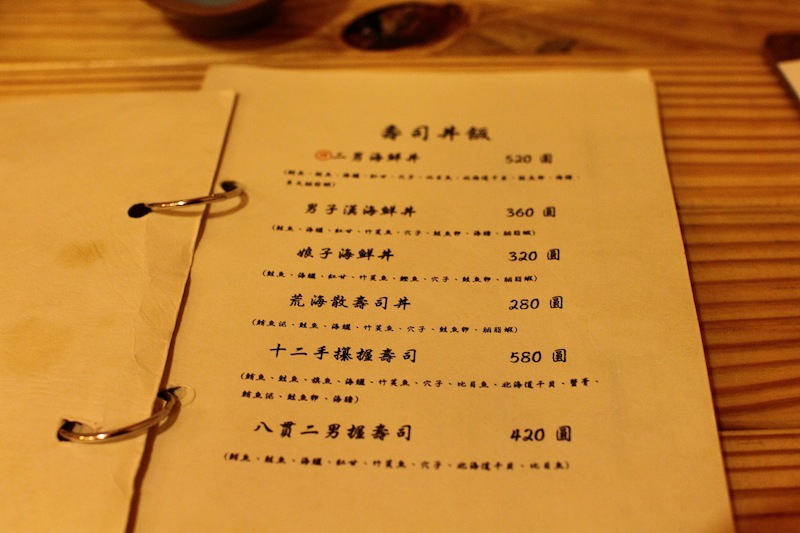 壽司丼飯
二男海鮮丼 520 圓
男子漢海鮮丼 360 圓
(鮭魚、海鱺、紅甘、竹筴魚、穴子、鮭魚卵、海膽、胭脂蝦)
娘子海鮮丼 320 圓
(鮭魚、海鱺、紅甘、竹筴魚、鰹魚、穴子、鮭魚卵、胭脂蝦)
荒海散壽司丼 280 圓
(鮪魚泥、鮭魚、海鱺、竹筴魚、穴子、鮭魚卵、胭脂蝦)
十二手攥握壽司 580 圓
(鮪魚、鮭魚、旗魚、海鱺、竹筴魚、穴子、比目魚、北海道干貝、蟹膏、
鮪魚泥、鮭魚卵、海膽)
八貫二男握壽司 420 圓
(鮪魚、鮭魚、海鱺、紅甘、竹筴魚、穴子、北海道干貝、比目魚)